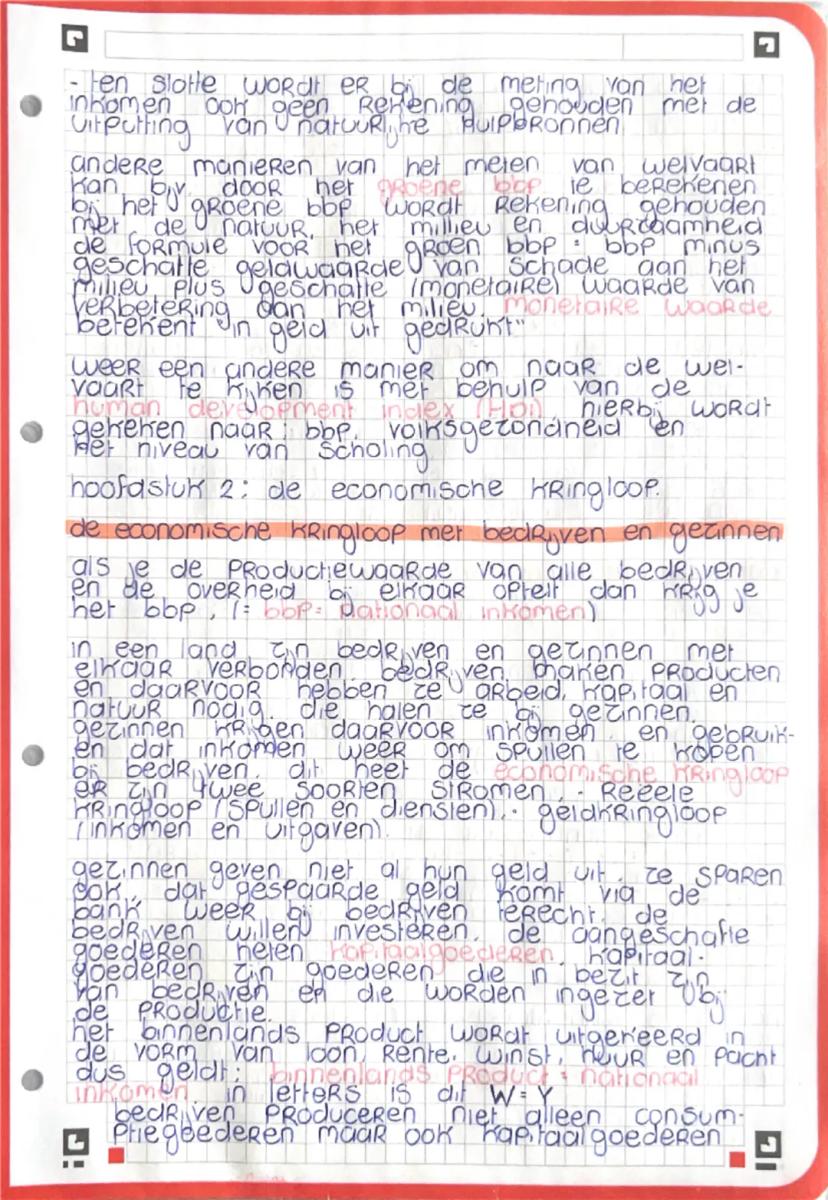 - ten slotte wordt er bij de meting van het
inkomen ook geen rekening gehouden met de
uitputting van natuurlijke hulpbronnen
andere manieren van het meten van welvaart
kan bijv. door het groene bbp te berekenen
bij het groene bbp wordt rekening gehouden
met de natuur, het millieu en duurzaamheid
de formule voor het groen bbp = bbp minus
geschatte geldwaarde van schade aan het
milieu plus geschatte (monetaire) waarde van
verbetering aan het milieu. monetaire waarde
betekent "in geld uit gedrukt"
weer een andere manier om naar de wel-
vaart te kijken is met behulp van de
human development index (HDI). hierbij wordt
gekeken naar: bbp, volksgezondheid en
het niveau van scholing
hoofdstuk 2: de economische kringloop.
de economische kringloop met bedrijven en gezinnen
als je de productiewaarde van alle bedrijven
en de overheid bij elkaar optelt dan krijg je
het bbp. (= bbp = nationaal inkomen)
in een land zijn bedrijven en gezinnen met
elkaar verbonden. bedrijven maken producten
en daarvoor hebben ze arbeid, kapitaal en
natuur nodig. die halen ze bij gezinnen.
gezinnen krijgen daarvoor inkomen. en gebruik-
en dat inkomen weer om spullen te kopen
bij bedrijven. dit heet de economische kringloop
er zijn twee soorten stromen. · Reeele
kringloop (spullen en diensten). · geldkringloop
(inkomen en uitgaven).
gezinnen geven niet al hun geld uit. ze sparen
ook. dat gespaarde geld komt via de
bank weer bij bedrijven terecht. de
bedrijven willen investeren. de aangeschafte
goederen heten kapitaalgoederen. kapitaal-
goederen zijn goederen die in bezit zijn
van bedrijven en die worden ingezet bij
de productie.
het binnenlands product wordt uitgekeerd in
de vorm van loon, rente, winst, huur en pacht
dus geldt: binnenlands product = nationaal
inkomen. in letters is dit W=Y
bedrijven produceren niet alleen consum-
ptiegoederen maar ook kapitaalgoederen